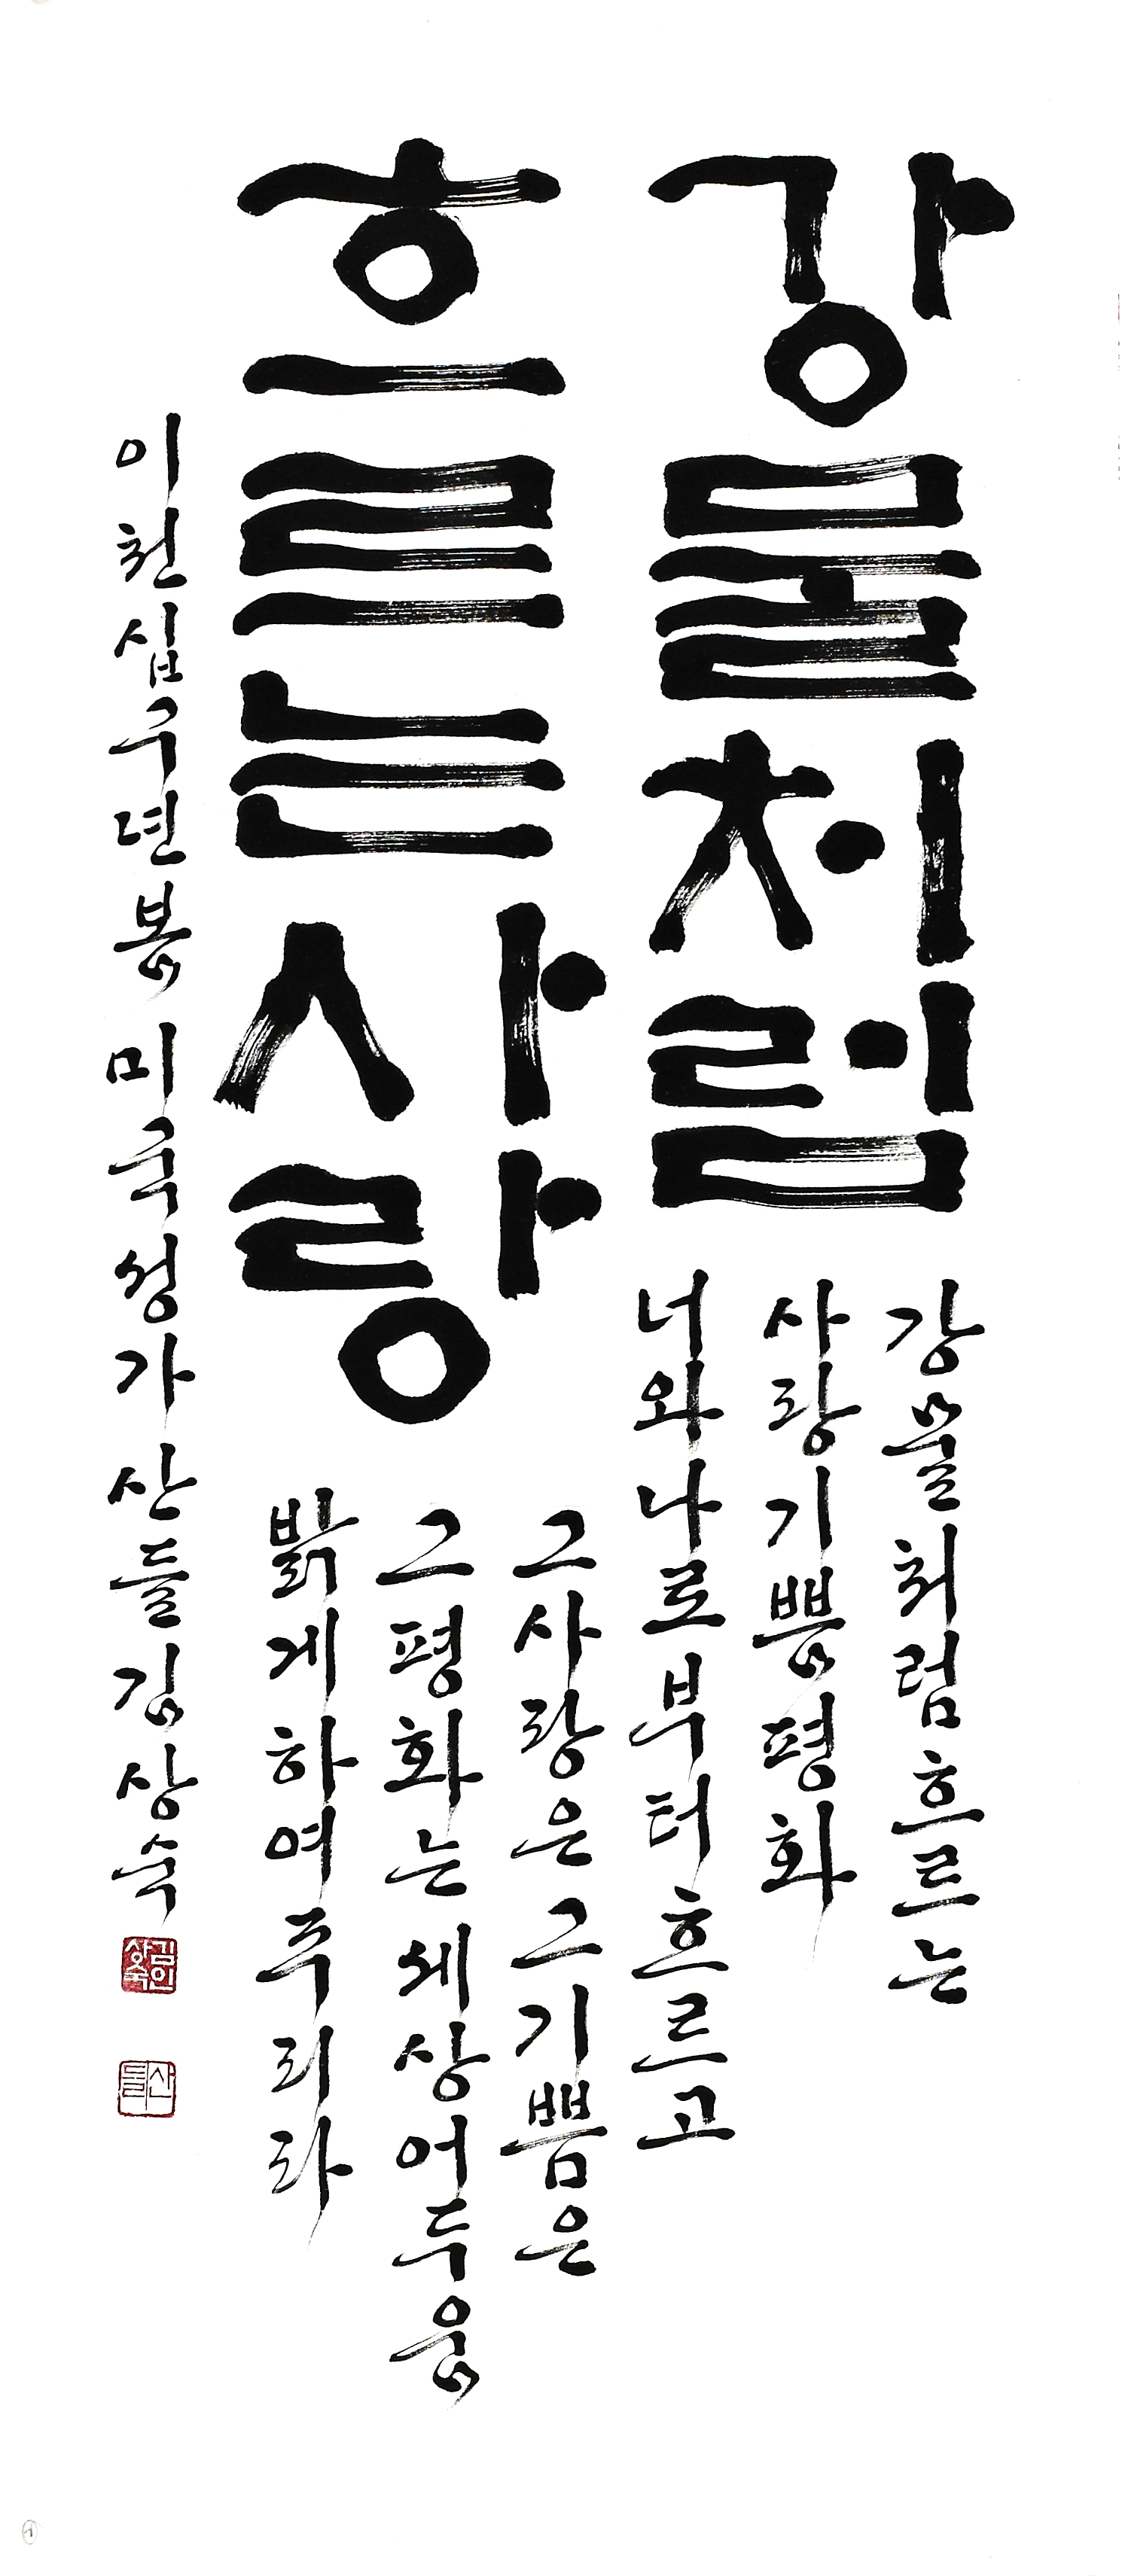 강물처럼
흐르는사랑
강물처럼흐르는
사랑기쁨평화
너와나로부터흐르고
그사랑은그기쁨은
그평화는세상어두움
밝게하여주리라
이천십구년봄 미국성가 산들김상숙
김인
상숙
산들